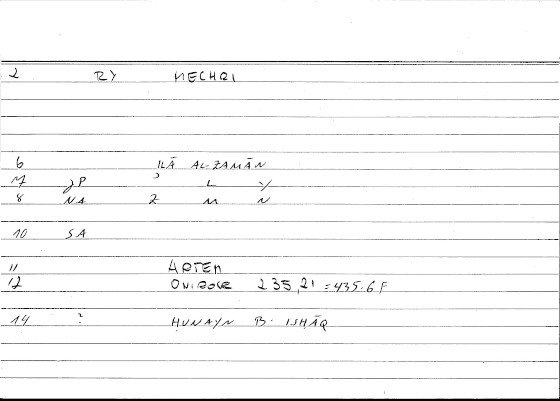 2 RY NECHRI
6 ILĀ AL-ZAMĀN
7 JP ʾ L Y
8 NA Z M N
10 SA
11 ARTEM
12 235,21 = 435.6 F
14 ? HUNAYN B. ISHĀQ